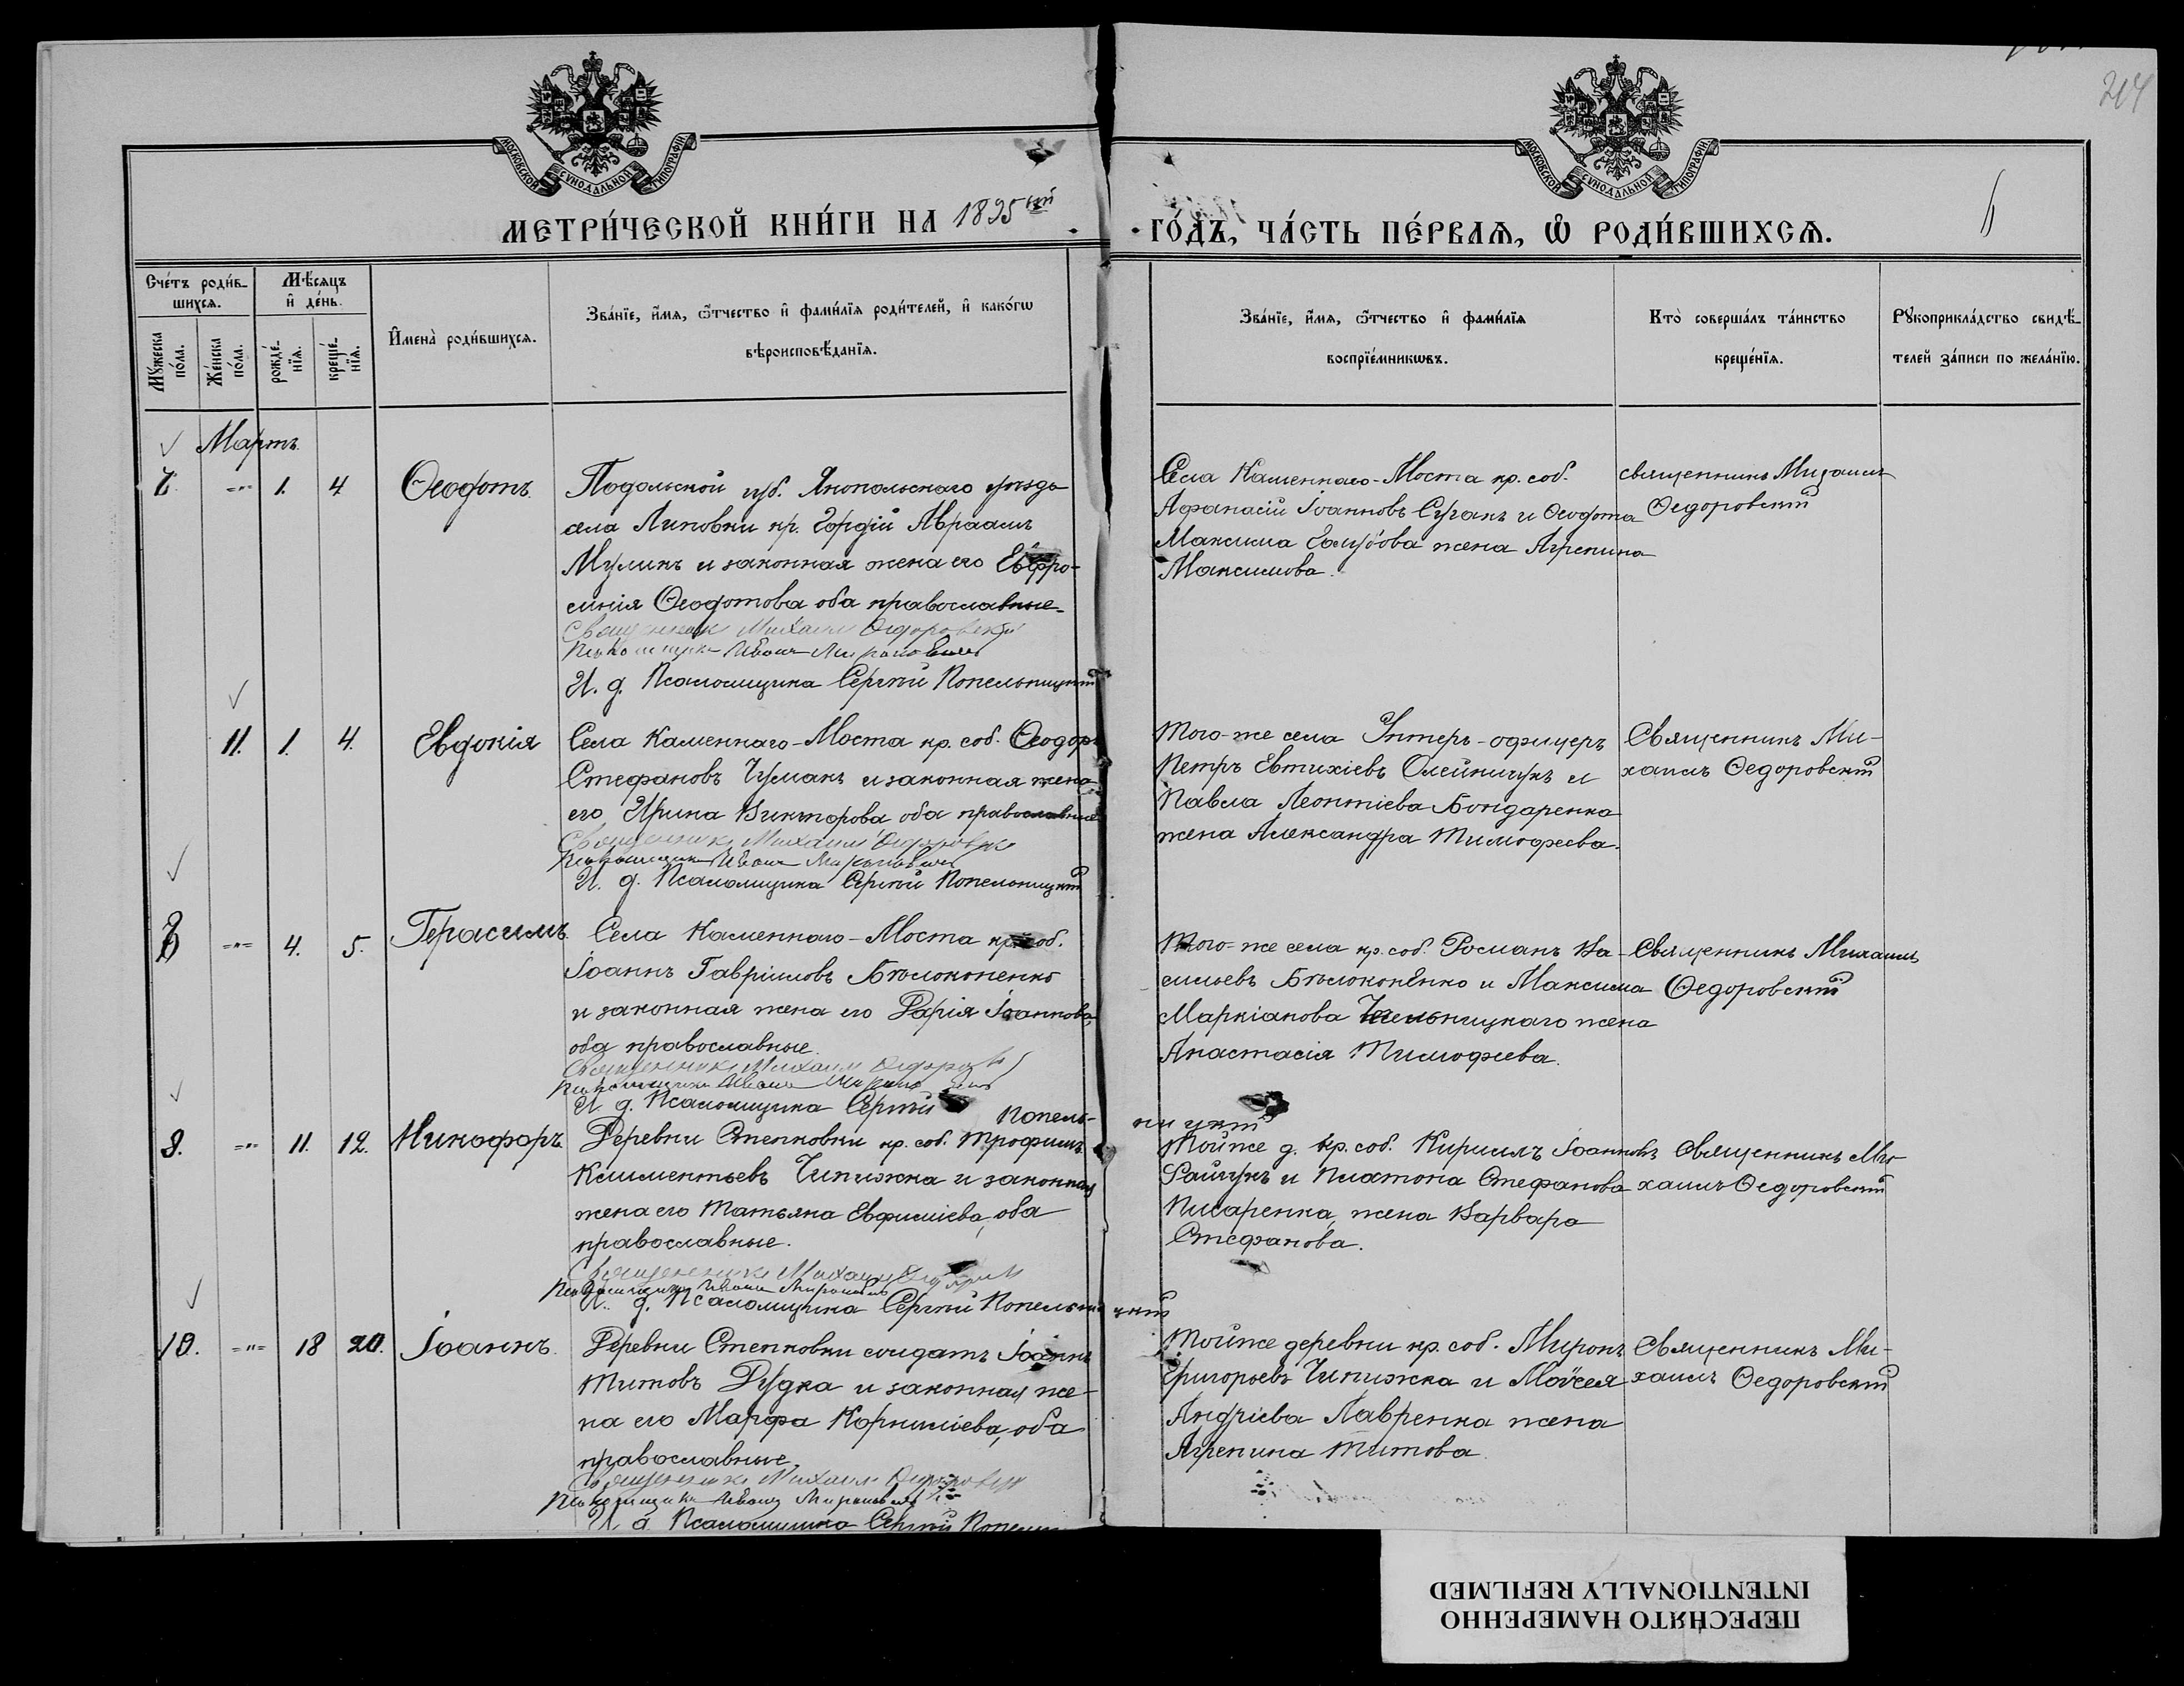 214
МОСКОВСКОЙ СУНОДАЛЬНОЙ ТИПОГРАФІИ
МОСКОВСКОЙ СУНОДАЛЬНОЙ ТИПОГРАФІИ
МЕТРИ́ЧЕСКОЙ КНИ́ГИ НА 1895 й
ГО́ДЪ, ЧА́СТЬ ПЕ́РВАѦ, Ѡ РОДИ́ВШИХСѦ.
Сче́тъ роди́в-
шихсѧ.
Мꙋжеска
по́ла.
Же́нска
по́ла.
Мѣ́сяцъ
и де́нь.
рожде́-
нїѧ.
креще́-
нїѧ.
Имена̀ роди́вшихсѧ.
Зва́нїе, и́мѧ, ѻ́тчество и фами́лїѧ роди́телей, и како́гѡ
вѣроисповѣ́данїѧ.
Зва́нїе, и́мѧ, ѻ́тчество и фами́лїѧ
воспрїе́мникѡвъ.
Кто̀ соверша́лъ та́инство
креще́нїѧ.
Рꙋкоприкла́дство свидѣ́-
телей за́писи по жела́нїю.
Мартъ.
-"- 1. 4 Ѳеодотъ.
Подольской губ. Янопольскаго уѣзда
села Липовки кр. Гордій Авраамъ
Муликъ и законная жена его Евфро-
синія Ѳеодотова оба православные.
Священникъ Михаилъ Ѳедоровскій
Псаломщикъ Иванъ Мироновичъ
И. д. Псаломщика Сергѣй Попельницкій
Села Каменнаго-Моста кр. соб.
Афанасій Іоанновъ Суганъ и Ѳеодота
Максима Голубова жена Агрепина
Максимова.
священникъ Михаилъ
Ѳедоровскій
11. 1. 4. Евдокія
Села Каменнаго-Моста кр. соб. Ѳеодоръ
Стефановъ Чуманъ и законная жена
его Ирина Викторова оба православные
Священникъ Михаилъ Ѳедоровскій
Псаломщикъ Иванъ Мироновичъ
И. д. Псаломщика Сергѣй Попельницкій
Того-же села Унтеръ-офицеръ
Петръ Евтихіевъ Олейничукъ и
Павла Леонтіева Бондаренка
жена Александра Тимофеева.
Священникъ Ми-
хаилъ Ѳедоровскій
-"- 4. 5. Герасимъ.
Села Каменнаго-Моста кр. соб.
Іоаннъ Гавріиловъ Бѣлоконенко
и законная жена его Дарія Іоаннова,
оба православные.
Священникъ Михаилъ Ѳедоровскій
Псаломщикъ Иванъ Мироновичъ
И. д. Псаломщика Сергѣй Попель-
ницкій
Того-же села кр. соб. Романъ Ва-
сильевъ Бѣлоконенко и Максима
Маркіанова жена
Анастасія Тимофеева.
Священникъ Михаилъ
Ѳедоровскій
9. -"- 11. 12. Никофоръ
Деревни Степковки кр. соб. Трофимъ
Климентьевъ Чипижка и законная
жена его Татьяна Евфиміева, оба
православные.
Священникъ Михаилъ Ѳедоровскій
Псаломщикъ Иванъ Мироновичъ
И. д. Псаломщика Сергѣй Попельницкій
Тойже д. кр. соб. Кириллъ Іоанновъ
Райчукъ и Платона Стефанова
Писаренка, жена Варвара
Стефанова.
Священникъ Ми-
хаилъ Ѳедоровскій
10. -"- 18 20. Іоаннъ.
Деревни Степковки солдатъ Іоаннъ
Титовъ Дудка и законная же-
на его Марфа Корниліева, оба
православные.
Священникъ Михаилъ Ѳедоровскій
Псаломщикъ Иванъ Мироновичъ
И. д. Псаломщика Сергѣй
Тойже деревни кр. соб. Миронъ
Григорьевъ Чипижка и Моѵсея
Андріева Лавренка жена
Агрепина Титова.
Священникъ Ми-
хаилъ Ѳедоровскій
ПЕРЕСНЯТО НАМЕРЕННО
INTENTIONALLY REFILMED